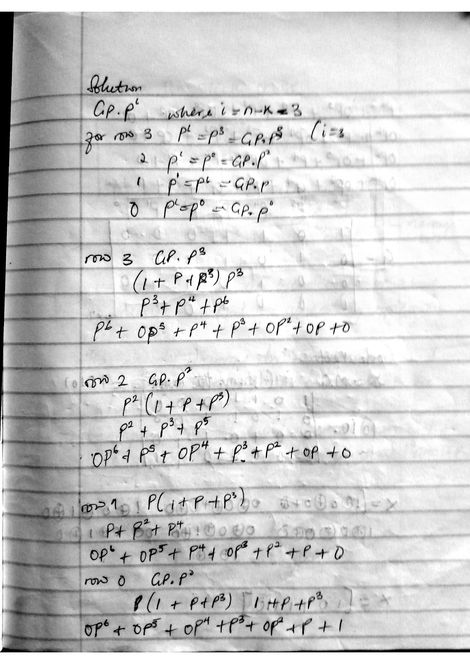 Solution
GP.pⁱ where i = n-k = 3
for row 3 pⁱ = p³ = GP.p³ (i=3
2 pⁱ = p² = GP.p²
1 pⁱ = pⁱ = GP.p
0 pⁱ = p⁰ = GP.p⁰
row 3 GP.p³
(1 + P + P³) p³
p³ + p⁴ + p⁶
p⁶ + 0p⁵ + p⁴ + p³ + 0p² + 0p + 0
row 2 GP.p²
p² (1 + P + P³)
p² + p³ + p⁵
0p⁶ + p⁵ + 0p⁴ + p³ + p² + 0p + 0
row 1 P(1 + P + P³)
P + P² + P⁴
0p⁶ + 0p⁵ + p⁴ + 0p³ + p² + p + 0
row 0 GP.p⁰
(1 + P + P³) 1 + P + P³
0p⁶ + 0p⁵ + 0p⁴ + p³ + 0p² + p + 1